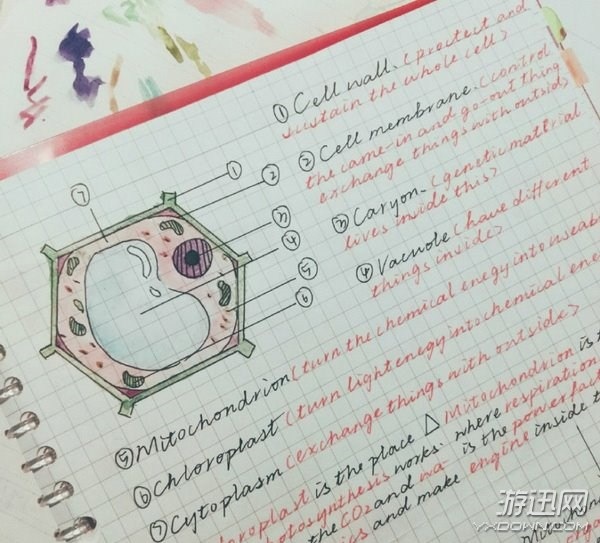 ① Cell wall. (proctect and
sustain the whole cell)
② Cell membrane. (control
the came-in and go-out thing
exchange things with outside
③ Caryon. (genetic material
lives inside this)
④ Vacuole (have different
things inside)
⑤ Mitochondrion (turn the chemical enegy into useab
⑥ Chloroplast (turn light enegy into chemical ene
⑦ Cytoplasm (exchange things with outside)
loroplast is the place △ Mitochondrion is t
hotosynthesis works. where respiration
the CO2 and wa is the power fact
ics and make engine inside t
Mitochon
orga
⑦
①
②
③
④
⑤
⑥
游迅网
VXDOWN.COM